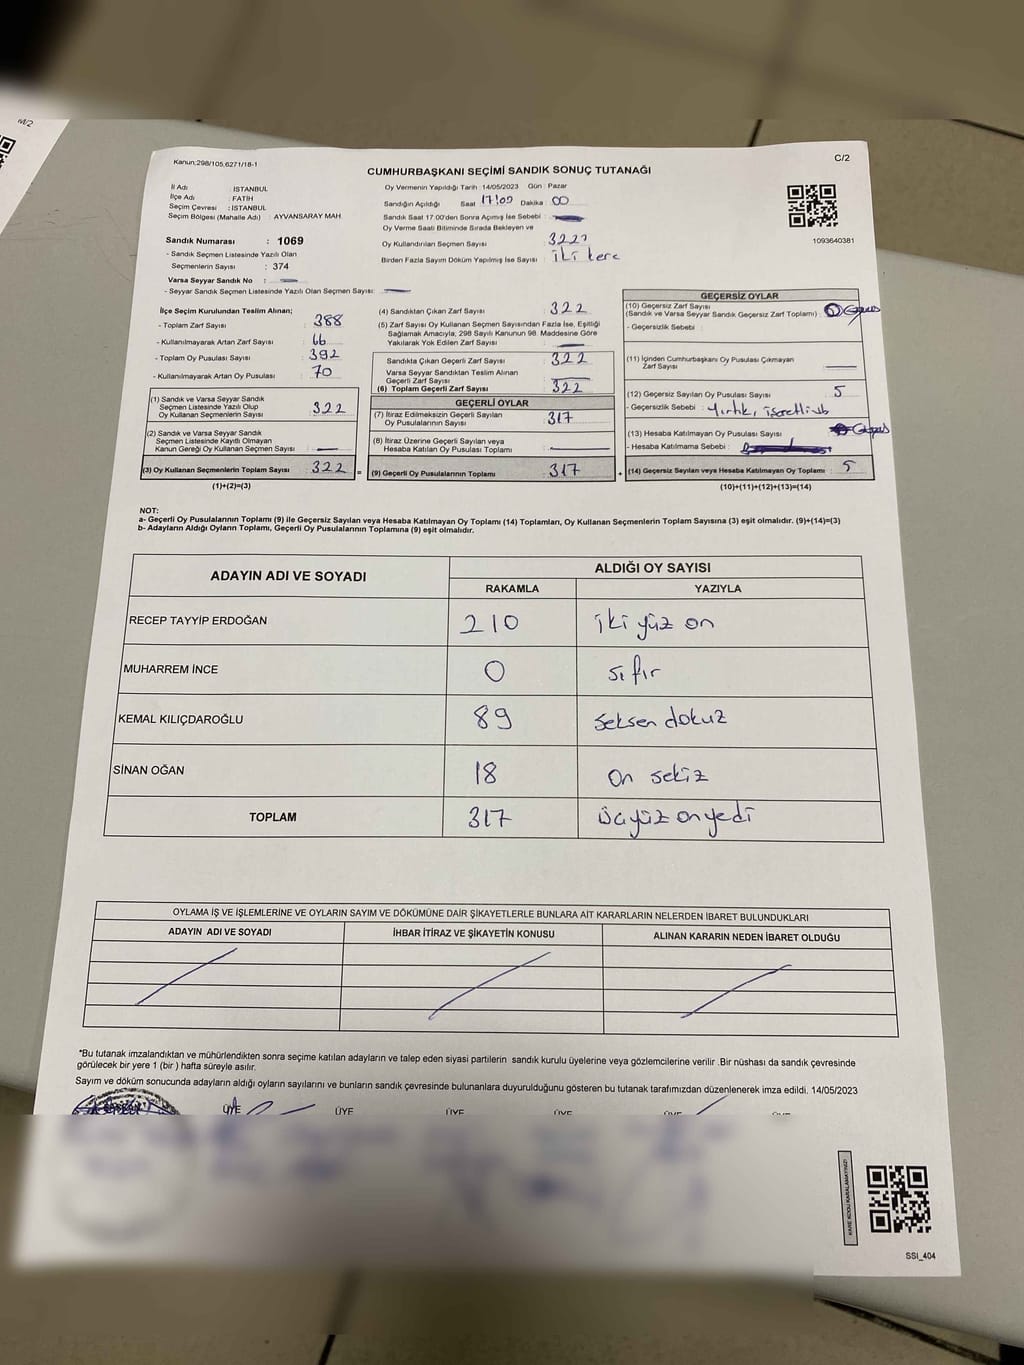 M/2
Kanun:298/105,6271/18-1
C/2
CUMHURBAŞKANI SEÇİMİ SANDIK SONUÇ TUTANAĞI
İl Adı : İSTANBUL
İlçe Adı : FATİH
Seçim Çevresi : İSTANBUL
Seçim Bölgesi (Mahalle Adı) : AYVANSARAY MAH
Sandık Numarası : 1069
- Sandık Seçmen Listesinde Yazılı Olan
Seçmenlerin Sayısı : 374
Varsa Seyyar Sandık No :
- Seyyar Sandık Seçmen Listesinde Yazılı Olan Seçmen Sayısı:
Oy Vermenin Yapıldığı Tarih :14/05/2023 Gün : Pazar
Sandığın Açıldığı Saat 17:09 Dakika 00
Sandık Saat 17.00'den Sonra Açımış İse Sebebi :
Oy Verme Saati Bitiminde Sırada Bekleyen ve
Oy Kullandırılan Seçmen Sayısı :
Birden Fazla Sayım Döküm Yapılmış İse Sayısı : iki kere
1093640381
İlçe Seçim Kurulundan Teslim Alınan;
- Toplam Zarf Sayısı : 388
- Kullanılmayarak Artan Zarf Sayısı : 66
- Toplam Oy Pusulası Sayısı : 392
- Kullanılmayarak Artan Oy Pusulası : 70
(1) Sandık ve Varsa Seyyar Sandık
Seçmen Listesinde Yazılı Olup
Oy Kullanan Seçmenlerin Sayısı : 322
(2) Sandık ve Varsa Seyyar Sandık
Seçmen Listesinde Kayıtlı Olmayan
Kanun Gereği Oy Kullanan Seçmen Sayısı :
(3) Oy Kullanan Seçmenlerin Toplam Sayısı : 322 =
(1)+(2)=(3)
(4) Sandıktan Çıkan Zarf Sayısı : 322
(5) Zarf Sayısı Oy Kullanan Seçmen Sayısından Fazla İse, Eşitliği
Sağlamak Amacıyla; 298 Sayılı Kanunun 98. Maddesine Göre
Yakılarak Yok Edilen Zarf Sayısı :
Sandıkta Çıkan Geçerli Zarf Sayısı : 322
Varsa Seyyar Sandıktan Teslim Alınan
Geçerli Zarf Sayısı :
(6) Toplam Geçerli Zarf Sayısı : 322
GEÇERLİ OYLAR
(7) İtiraz Edilmeksizin Geçerli Sayılan
Oy Pusulalarının Sayısı : 317
(8) İtiraz Üzerine Geçerli Sayılan veya
Hesaba Katılan Oy Pusulası Toplamı :
(9) Geçerli Oy Pusulalarının Toplamı : 317 +
GEÇERSİZ OYLAR
(10) Geçersiz Zarf Sayısı
(Sandık ve Varsa Seyyar Sandık Geçersiz Zarf Toplamı) :
- Geçersizlik Sebebi :
(11) İçinden Cumhurbaşkanı Oy Pusulası Çıkmayan
Zarf Sayısı :
(12) Geçersiz Sayılan Oy Pusulası Sayısı : 5
- Geçersizlik Sebebi : Yırtık,
(13) Hesaba Katılmayan Oy Pusulası Sayısı :
- Hesaba Katılmama Sebebi :
(14) Geçersiz Sayılan veya Hesaba Katılmayan Oy Toplamı : 5
(10)+(11)+(12)+(13)=(14)
NOT:
a- Geçerli Oy Pusulalarının Toplamı (9) ile Geçersiz Sayılan veya Hesaba Katılmayan Oy Toplamı (14) Toplamları, Oy Kullanan Seçmenlerin Toplam Sayısına (3) eşit olmalıdır. (9)+(14)=(3)
b- Adayların Aldığı Oyların Toplamı, Geçerli Oy Pusulalarının Toplamına (9) eşit olmalıdır.
ADAYIN ADI VE SOYADI
ALDIĞI OY SAYISI
RAKAMLA YAZIYLA
RECEP TAYYİP ERDOĞAN 210 iki yüz on
MUHARREM İNCE 0 sıfır
KEMAL KILIÇDAROĞLU 89 seksen dokuz
SİNAN OĞAN 18 on sekiz
TOPLAM 317 üçyüz onyedi
OYLAMA İŞ VE İŞLEMLERİNE VE OYLARIN SAYIM VE DÖKÜMÜNE DAİR ŞİKAYETLERLE BUNLARA AİT KARARLARIN NELERDEN İBARET BULUNDUKLARI
ADAYIN ADI VE SOYADI İHBAR İTİRAZ VE ŞİKAYETİN KONUSU ALINAN KARARIN NEDEN İBARET OLDUĞU
*Bu tutanak imzalandıktan ve mühürlendikten sonra seçime katılan adayların ve talep eden siyasi partilerin sandık kurulu üyelerine veya gözlemcilerine verilir .Bir nüshası da sandık çevresinde
görülecek bir yere 1 (bir ) hafta süreyle asılır.
Sayım ve döküm sonucunda adayların aldığı oyların sayılarını ve bunların sandık çevresinde bulunanlara duyurulduğunu gösteren bu tutanak tarafımızdan düzenlenerek imza edildi. 14/05/2023
ÜYE ÜYE ÜYE ÜYE ÜYE
KARE KODU KARALAMAYINIZ!
SSI_404